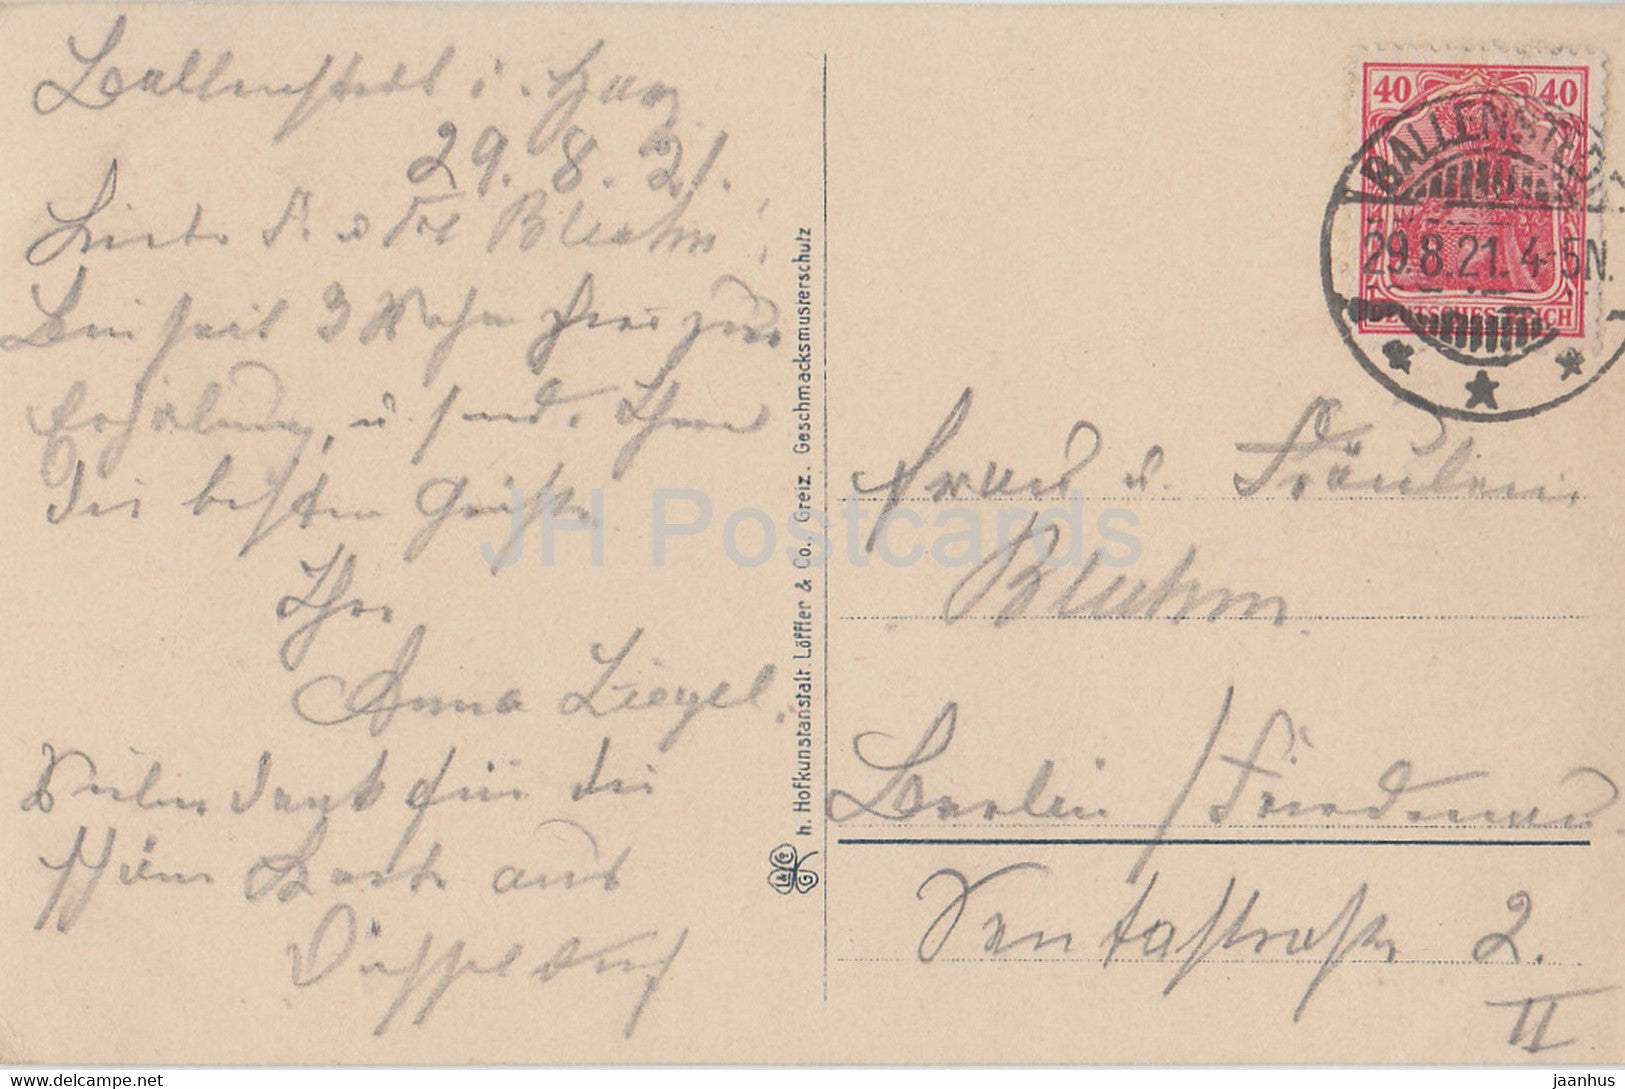 Ballenstedt i. Harz
29. 8. 21.
Liebe F. u Frl Bluhm!
Bin seit 3 Wochen hier zur
Erholung, u. sende Ihnen
die besten Grüße.
Ihre
Anna Ziegel.
Vielen Dank für die
schöne Karte aus
Düsseldorf
h. Hofkunstanstalt Löffler & Co., Greiz. Geschmacksmusterschutz
L & C G
40 40
DEUTSCHES REICH
BALLENSTEDT
29.8.21. 4-5N.
Frau u. Fräulein
Bluhm.
Berlin / Friedenau
Bentastraße 2.
II
JH Postcards
www.delcampe.net
jaanhus